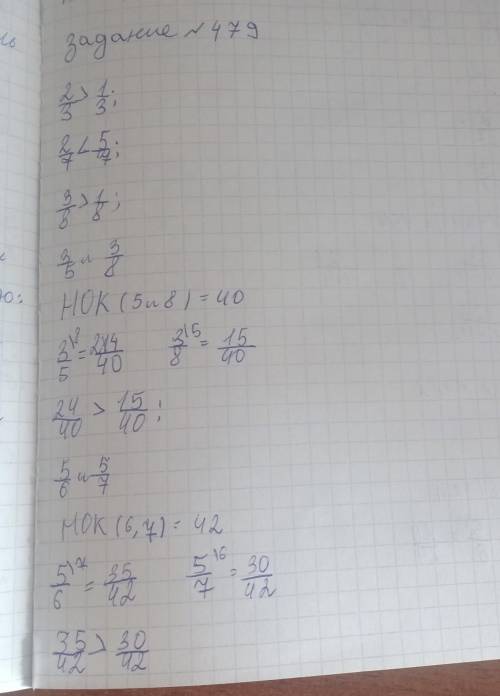 задание №479
2/3 > 1/3;
2/7 < 5/7;
3/5 > 1/5;
3/5 и 3/8
НОК (5 и 8) = 40
3/5 \8 = 24/40 3/8 \5 = 15/40
24/40 > 15/40;
5/6 и 5/7
НОК (6,7) = 42
5/6 \7 = 35/42 5/7 \6 = 30/42
35/42 > 30/42